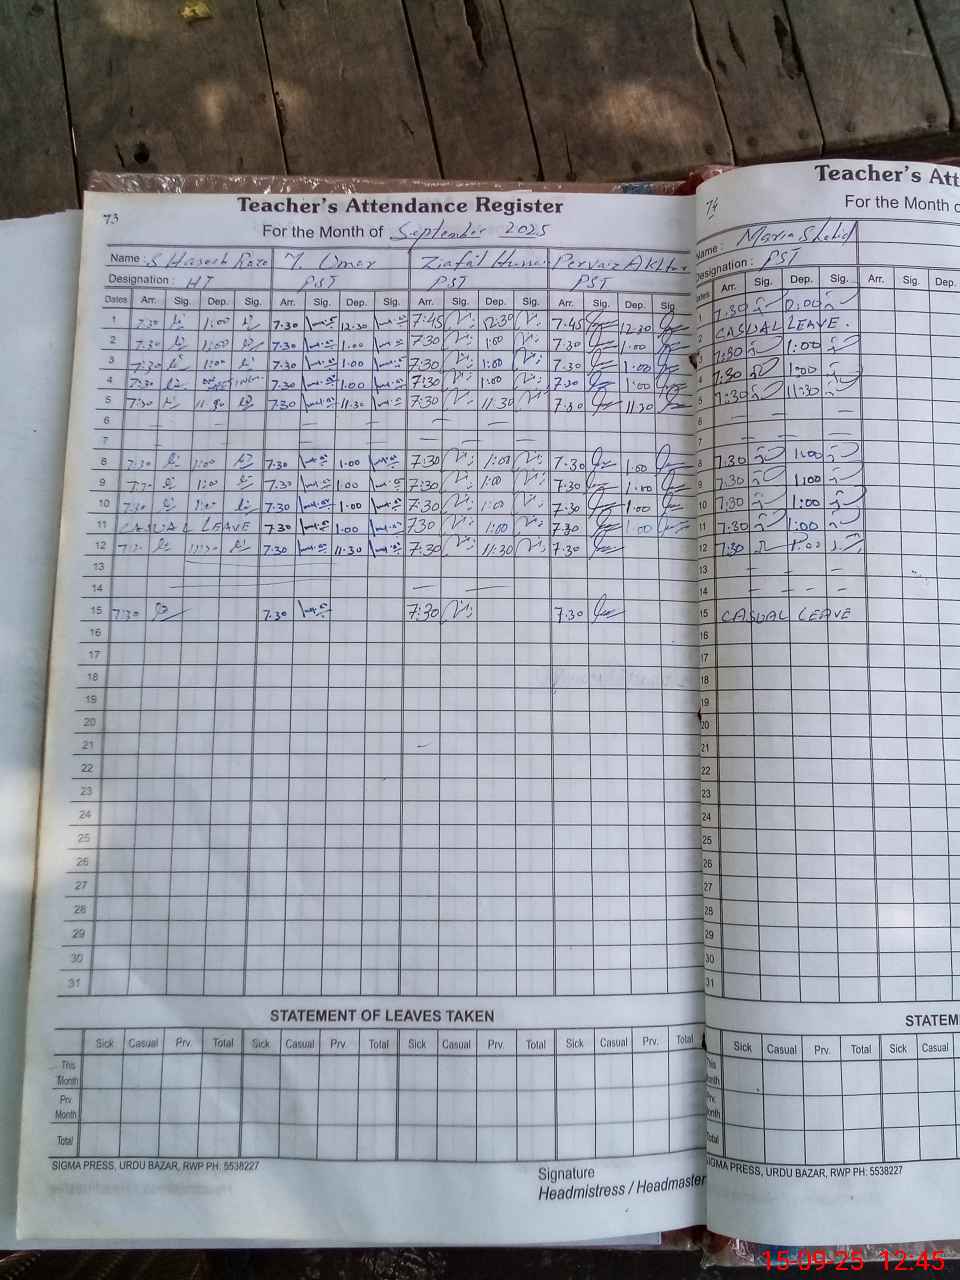 73
Teacher's Attendance Register
For the Month of September 2025
Name : S. Haseeb Raza M. Umar Ziafat Pervaiz Akhtar
Designation : HT PST PST PST
Dates Arr. Sig. Dep. Sig. Arr. Sig. Dep. Sig. Arr. Sig. Dep. Sig. Arr. Sig. Dep. Sig.
1 7:30 1:00 7.30 12:30 7:45 12:30 7.45 12.30
2 7:30 1:00 7.30 1.00 7:30 1:00 7.30 1.00
3 7:30 1:00 7.30 1.00 7:30 1:00 7.30 1.00
4 7:30 7.30 1.00 7:30 1:00 7.30 1.00
5 7:30 11:30 7.30 11.30 7:30 11:30 7.30 11.30
6 — — — —
7 — — — —
8 7:30 1:00 7.30 1.00 7:30 1:00 7.30 1.00
9 1:00 7.30 1.00 7:30 1:00 7.30 1.00
10 7:30 1:00 7.30 1.00 7:30 1:00 7.30 1.00
11 CASUAL LEAVE 7.30 1.00 7:30 1:00 7.30 1.00
12 7.30 11.30 7:30 11:30 7.30
13
14
15 7:30 7.30 7:30 7.30
16
17
18
19
20
21
22
23
24
25
26
27
28
29
30
31
STATEMENT OF LEAVES TAKEN
Sick Casual Prv. Total Sick Casual Prv. Total Sick Casual Prv. Total Sick Casual Prv. Total
This Month
Prv. Month
Total
SIGMA PRESS, URDU BAZAR, RWP PH: 5538227
Signature
Headmistress / Headmaster
74
Teacher's Att
For the Month o
Name : Maria Shahid
Designation : PST
Dates Arr. Sig. Dep. Sig. Arr. Sig. Dep.
1 7:30 12:00
2 CASUAL LEAVE.
3 7:30 1:00
4 7:30 1:00
5 7:30 11:30
6 — — —
7 — — —
8 7:30 1:00
9 7:30 1:00
10 7:30 1:00
11 7:30 1:00
12 7:30 1:00
13 — — — —
14 — — — —
15 CASUAL LEAVE
16
17
18
19
20
21
22
23
24
25
26
27
28
29
30
31
STATEM
Sick Casual Prv. Total Sick Casual
This Month
Prv. Month
Total
SIGMA PRESS, URDU BAZAR, RWP PH: 5538227
15-09-25 12:45